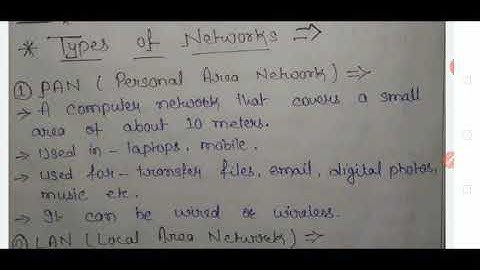 * Types of Networks ⇒
① PAN ( Personal Area Network ) ⇒
→ A computer network that covers a small
area of about 10 meters.
→ Used in - laptops, mobile.
→ used for - transfer files, email, digital photos,
music etc.
→ It can be wired or wireless.
② LAN ( Local Area Network ) ⇒